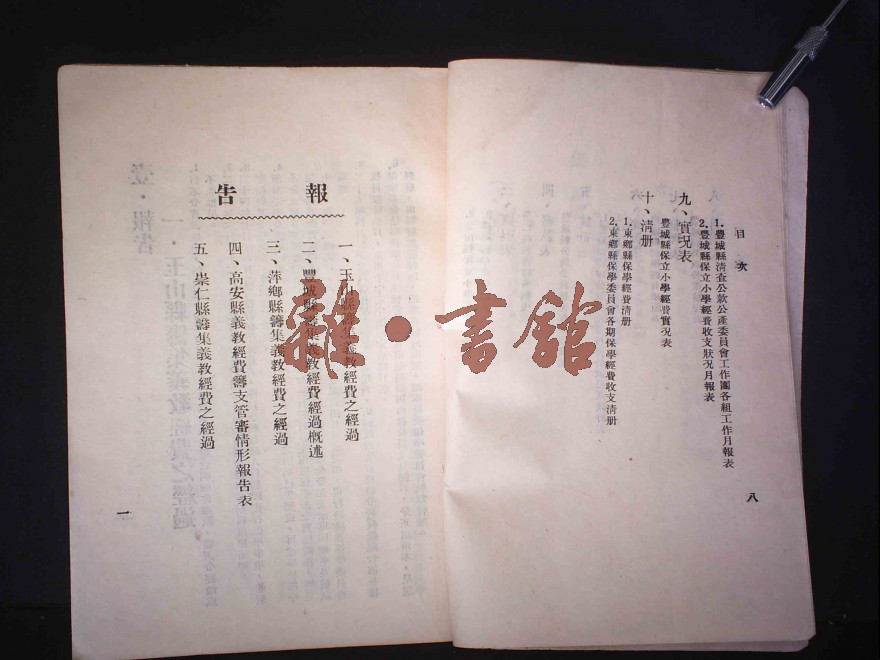 目次
1.豐城縣清查公款公產委員會工作團各組工作月報表
2.豐城縣保立小學經費收支狀況月報表
九、實況表
豐城縣保立小學經費實況表
十、清册
1.東鄉縣保學經費清册
2.東鄉縣保學委員會各期保學經費收支清册
八
報告
一、玉山縣籌集義教經費之經過
二、豐城縣籌集義教經費經過概述
三、萍鄉縣籌集義教經費之經過
四、高安縣義教經費籌支管審情形報告表
五、崇仁縣籌集義教經費之經過
一
雜·書館